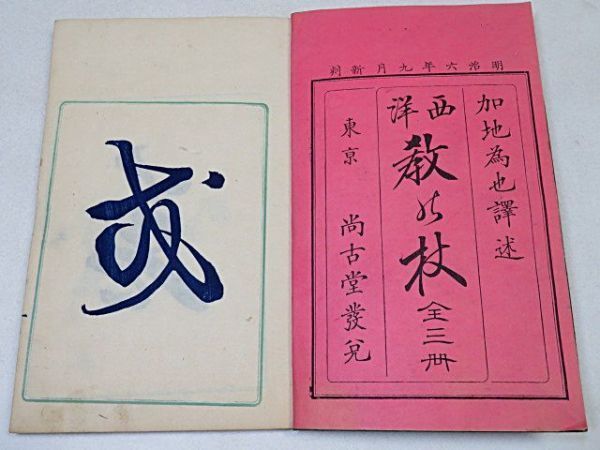 明治六年九月新刻
加地為也譯述
西洋
教の杖
全三冊
東京 尚古堂發兌